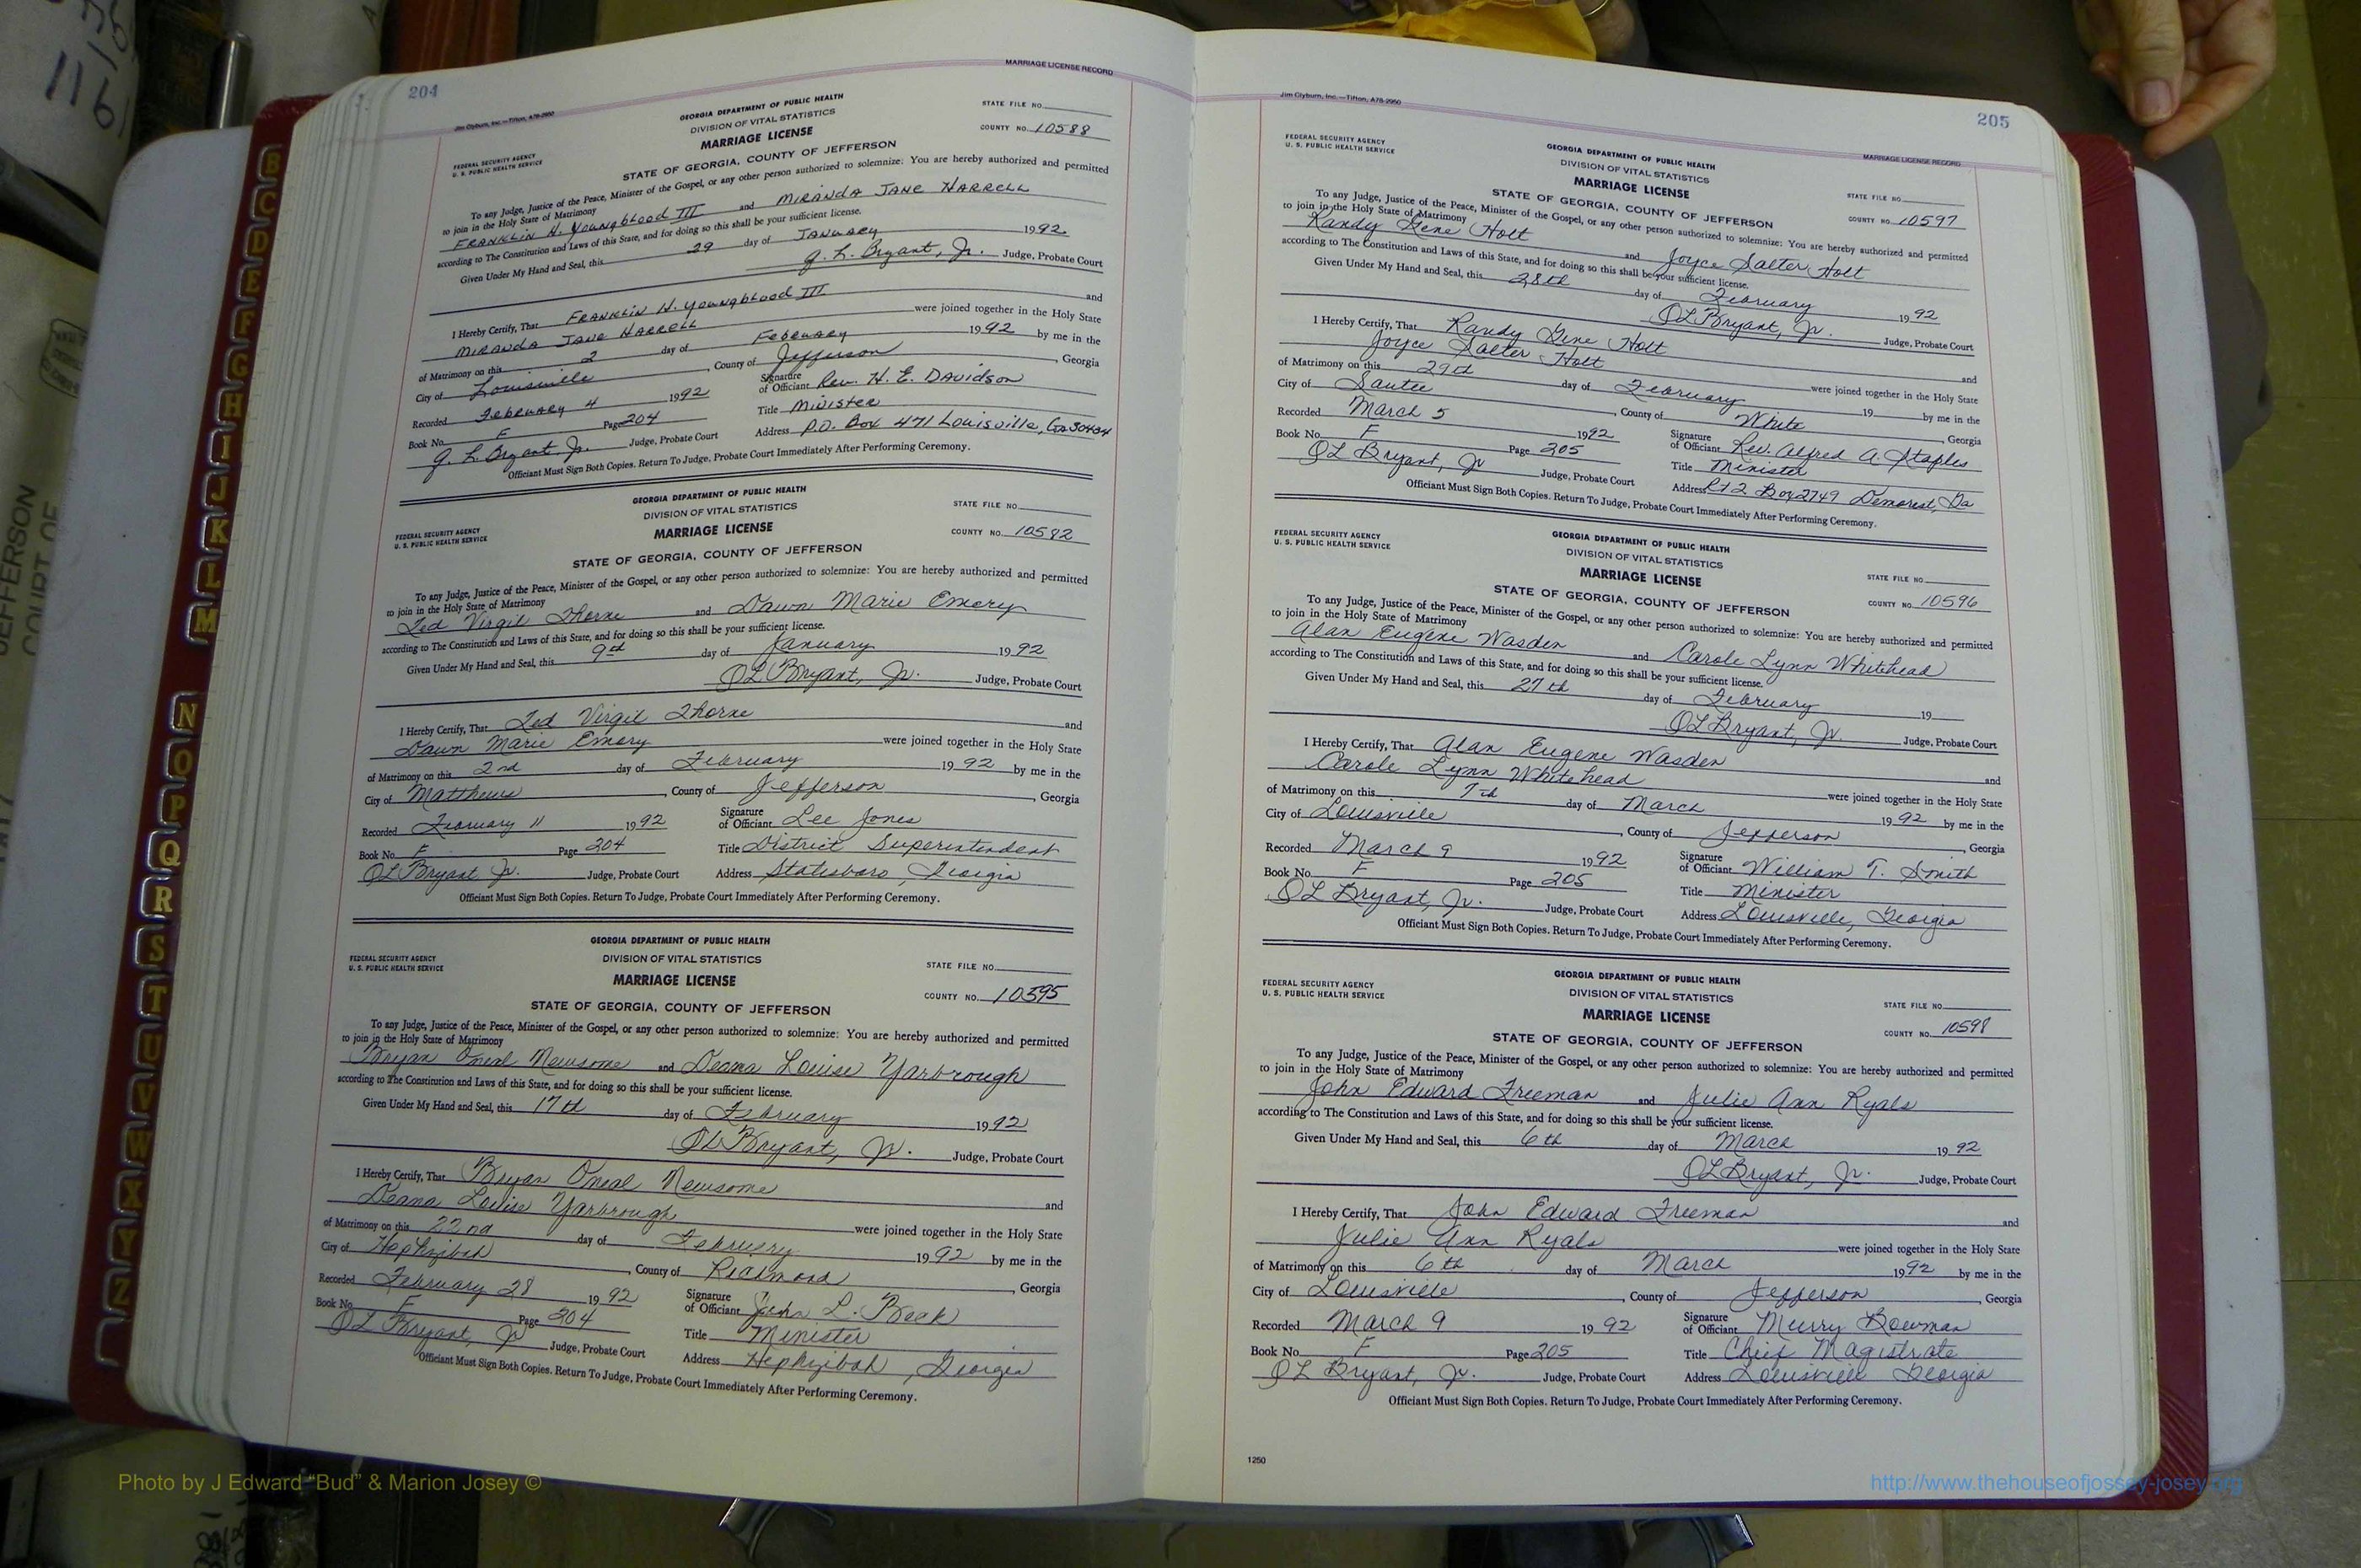 204
Jim Clyburn, Inc.—Tifton, A78-2950
MARRIAGE LICENSE RECORD
GEORGIA DEPARTMENT OF PUBLIC HEALTH
DIVISION OF VITAL STATISTICS
MARRIAGE LICENSE
STATE OF GEORGIA, COUNTY OF JEFFERSON
FEDERAL SECURITY AGENCY
U. S. PUBLIC HEALTH SERVICE
STATE FILE NO.
COUNTY NO. 10588
To any Judge, Justice of the Peace, Minister of the Gospel, or any other person authorized to solemnize: You are hereby authorized and permitted
to join in the Holy State of Matrimony
FRANKLIN H. YOUNGBLOOD III and MIRANDA JANE HARRELL
according to The Constitution and Laws of this State, and for doing so this shall be your sufficient license.
Given Under My Hand and Seal, this 29 day of JANUARY 1992
Q. L. Bryant, Jr. Judge, Probate Court
I Hereby Certify, That FRANKLIN H. YOUNGBLOOD III and
MIRANDA JANE HARRELL were joined together in the Holy State
of Matrimony on this 2 day of February 1992 by me in the
City of Louisville, County of Jefferson, Georgia
Recorded February 4 1992 Signature of Officiant Rev. H. E. Davidson
Book No. F Page 204 Title Minister
Q. L. Bryant, Jr. Judge, Probate Court Address P.O. Box 471 Louisville, Ga 30434
Officiant Must Sign Both Copies. Return To Judge, Probate Court Immediately After Performing Ceremony.
GEORGIA DEPARTMENT OF PUBLIC HEALTH
DIVISION OF VITAL STATISTICS
MARRIAGE LICENSE
STATE OF GEORGIA, COUNTY OF JEFFERSON
FEDERAL SECURITY AGENCY
U. S. PUBLIC HEALTH SERVICE
STATE FILE NO.
COUNTY NO. 10582
To any Judge, Justice of the Peace, Minister of the Gospel, or any other person authorized to solemnize: You are hereby authorized and permitted
to join in the Holy State of Matrimony
Ted Virgil Thorne and Dawn Marie Emery
according to The Constitution and Laws of this State, and for doing so this shall be your sufficient license.
Given Under My Hand and Seal, this 9th day of January 1992
QL Bryant, Jr. Judge, Probate Court
I Hereby Certify, That Ted Virgil Thorne and
Dawn Marie Emery were joined together in the Holy State
of Matrimony on this 2nd day of February 1992 by me in the
City of Matthews, County of Jefferson, Georgia
Recorded February 11 1992 Signature of Officiant Lee Jones
Book No. F Page 204 Title District Superintendent
QL Bryant Jr. Judge, Probate Court Address Statesboro, Georgia
Officiant Must Sign Both Copies. Return To Judge, Probate Court Immediately After Performing Ceremony.
GEORGIA DEPARTMENT OF PUBLIC HEALTH
DIVISION OF VITAL STATISTICS
MARRIAGE LICENSE
STATE OF GEORGIA, COUNTY OF JEFFERSON
FEDERAL SECURITY AGENCY
U. S. PUBLIC HEALTH SERVICE
STATE FILE NO.
COUNTY NO. 10595
To any Judge, Justice of the Peace, Minister of the Gospel, or any other person authorized to solemnize: You are hereby authorized and permitted
to join in the Holy State of Matrimony
Bryan Oneal Newsome and Deana Louise Yarbrough
according to The Constitution and Laws of this State, and for doing so this shall be your sufficient license.
Given Under My Hand and Seal, this 17th day of February 1992
QL Bryant, Jr. Judge, Probate Court
I Hereby Certify, That Bryan Oneal Newsome and
Deana Louise Yarbrough were joined together in the Holy State
of Matrimony on this 22nd day of February 1992 by me in the
City of Hephzibah, County of Richmond, Georgia
Recorded February 28 1992 Signature of Officiant John L. Beck
Book No. F Page 204 Title Minister
QL Bryant, Jr Judge, Probate Court Address Hephzibah, Georgia
Officiant Must Sign Both Copies. Return To Judge, Probate Court Immediately After Performing Ceremony.
205
Jim Clyburn, Inc.—Tifton, A78-2950
MARRIAGE LICENSE RECORD
GEORGIA DEPARTMENT OF PUBLIC HEALTH
DIVISION OF VITAL STATISTICS
MARRIAGE LICENSE
STATE OF GEORGIA, COUNTY OF JEFFERSON
FEDERAL SECURITY AGENCY
U. S. PUBLIC HEALTH SERVICE
STATE FILE NO.
COUNTY NO. 10597
To any Judge, Justice of the Peace, Minister of the Gospel, or any other person authorized to solemnize: You are hereby authorized and permitted
to join in the Holy State of Matrimony
Randy Gene Holt and Joyce Salter Holt
according to The Constitution and Laws of this State, and for doing so this shall be your sufficient license.
Given Under My Hand and Seal, this 28th day of February 1992
QL Bryant, Jr. Judge, Probate Court
I Hereby Certify, That Randy Gene Holt and
Joyce Salter Holt were joined together in the Holy State
of Matrimony on this 29th day of February 19 by me in the
City of Sautee, County of White, Georgia
Recorded March 5 1992 Signature of Officiant Rev. Alfred A. Staples
Book No. F Page 205 Title Minister
QL Bryant, Jr Judge, Probate Court Address Rt 2 Box 2749 Demorest, Ga
Officiant Must Sign Both Copies. Return To Judge, Probate Court Immediately After Performing Ceremony.
GEORGIA DEPARTMENT OF PUBLIC HEALTH
DIVISION OF VITAL STATISTICS
MARRIAGE LICENSE
STATE OF GEORGIA, COUNTY OF JEFFERSON
FEDERAL SECURITY AGENCY
U. S. PUBLIC HEALTH SERVICE
STATE FILE NO.
COUNTY NO. 10596
To any Judge, Justice of the Peace, Minister of the Gospel, or any other person authorized to solemnize: You are hereby authorized and permitted
to join in the Holy State of Matrimony
Alan Eugene Wasden and Carole Lynn Whitehead
according to The Constitution and Laws of this State, and for doing so this shall be your sufficient license.
Given Under My Hand and Seal, this 27th day of February 19
QL Bryant, Jr. Judge, Probate Court
I Hereby Certify, That Alan Eugene Wasden and
Carole Lynn Whitehead were joined together in the Holy State
of Matrimony on this 7th day of March 1992 by me in the
City of Louisville, County of Jefferson, Georgia
Recorded March 9 1992 Signature of Officiant William T. Smith
Book No. F Page 205 Title Minister
QL Bryant, Jr. Judge, Probate Court Address Louisville, Georgia
Officiant Must Sign Both Copies. Return To Judge, Probate Court Immediately After Performing Ceremony.
GEORGIA DEPARTMENT OF PUBLIC HEALTH
DIVISION OF VITAL STATISTICS
MARRIAGE LICENSE
STATE OF GEORGIA, COUNTY OF JEFFERSON
FEDERAL SECURITY AGENCY
U. S. PUBLIC HEALTH SERVICE
STATE FILE NO.
COUNTY NO. 10598
To any Judge, Justice of the Peace, Minister of the Gospel, or any other person authorized to solemnize: You are hereby authorized and permitted
to join in the Holy State of Matrimony
John Edward Freeman and Julie Ann Ryals
according to The Constitution and Laws of this State, and for doing so this shall be your sufficient license.
Given Under My Hand and Seal, this 6th day of March 1992
QL Bryant, Jr. Judge, Probate Court
I Hereby Certify, That John Edward Freeman and
Julie Ann Ryals were joined together in the Holy State
of Matrimony on this 6th day of March 1992 by me in the
City of Louisville, County of Jefferson, Georgia
Recorded March 9 1992 Signature of Officiant Murry Bowman
Book No. F Page 205 Title Chief Magistrate
QL Bryant, Jr. Judge, Probate Court Address Louisville Georgia
Officiant Must Sign Both Copies. Return To Judge, Probate Court Immediately After Performing Ceremony.
1250
B
C
D
E
F
G
H
I
J
K
L
M
N
O
P
Q
R
S
T
U
V
W
X
Y
Z
JEFFERSON
COURT OF
Photo by J Edward “Bud” & Marion Josey ©
http://www.thehouseofjossey-josey.org